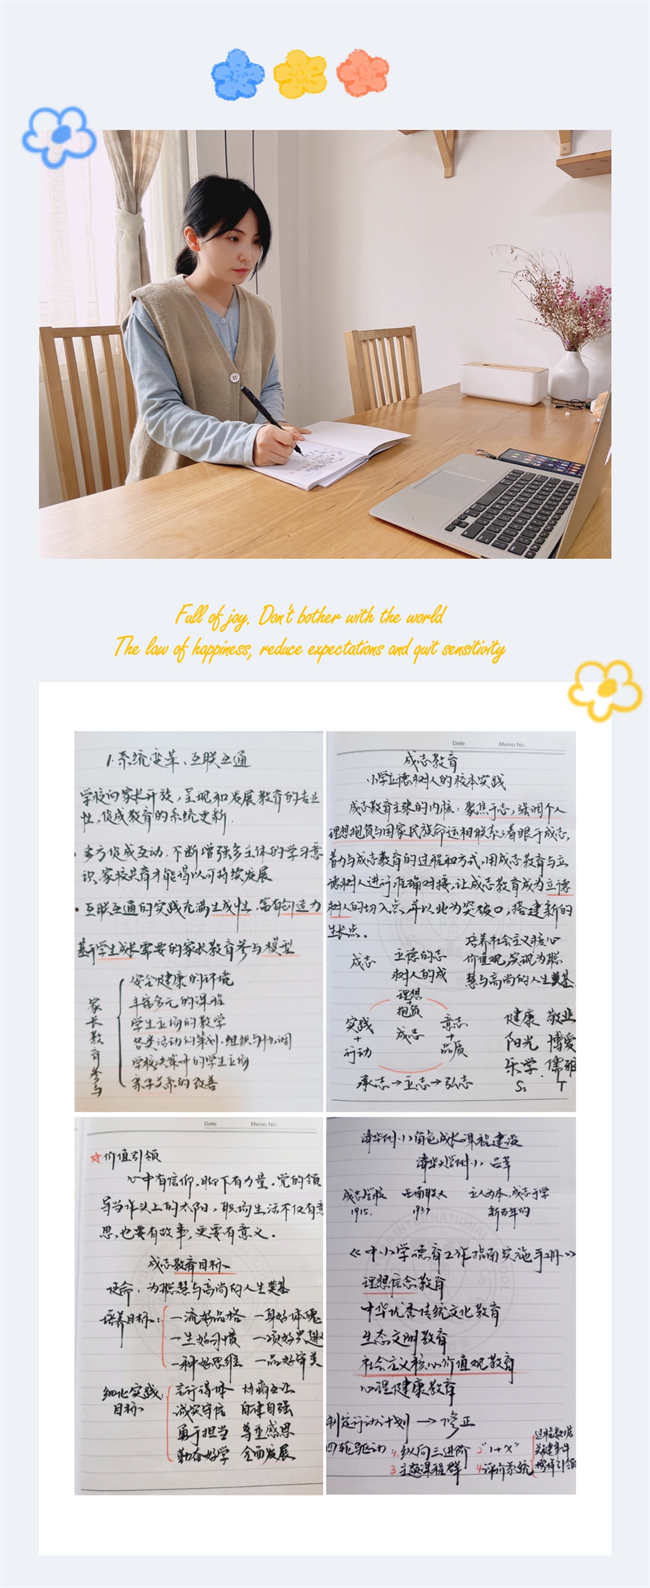 Full of joy. Don't bother with the world
The law of happiness, reduce expectations and quit sensitivity
1.系统变革、互联互通
学校向家长开放，呈现和发展教育的专业
性，促成教育的系统更新.
·多方促成互动，不断增强多主体的学习意
识，家校共育才能得以可持续发展
·互联互通的实践充满生成性，富创造力
基于学生成长需要的家长教育参与模型
家长教育参与
安全健康的环境
丰富多元的课程
学生立场的教学
各类活动的策划、组织与协调
学校决策中的学生立场
亲子关系的改善
Date Memo No.
成志教育
小学立德树人的校本实践
成志教育主张的内核：聚焦于志，强调个人
理想抱负与国家民族命运相联系；着眼于成志，
着力与成志教育的过程和方式，用成志教育与立
德树人进行准确对接，让成志教育成为立德
树人的切入点，并以此为突破口，搭建新的
生长点。
成志 立德的志
树人的成
培养社会主义核心
价值观，实现为聪
慧与高尚的人生奠基
理想
抱负
实践
+
行动
成志
意志
+
品质
承志→立志→弘志
健康 敬业
阳光 博爱
乐学 儒雅
S T
Date Memo No.
☆价值引领
心中有信仰，脚下有力量，党的领
导当作头上的太阳，职场生活不仅有意
思，也要有故事，更要有意义。
成志教育目标
使命：为聪慧与高尚的人生奠基
培养目标：
一流好品格 一身好体魄
一生好习惯 一项好兴趣
一种好思维 一品好审美
细化实践
目标
言行得体
诚实守信 自律自强
勇于担当 尊重感恩
勤奋好学 全面发展
清华附小角色成长课程建设
清华大学附小
成志学校 西南联大 立人为本，成志于学
1915. 1937 新百年的
《中小学德育工作指南实施手册》
理想信念教育
中华优秀传统文化教育
生态文明教育
社会主义核心价值观教育
心理健康教育
制定行动计划→修正
四轮驱动 1.纵向三进阶 2"1+X"
3主题课程群 4评价系统